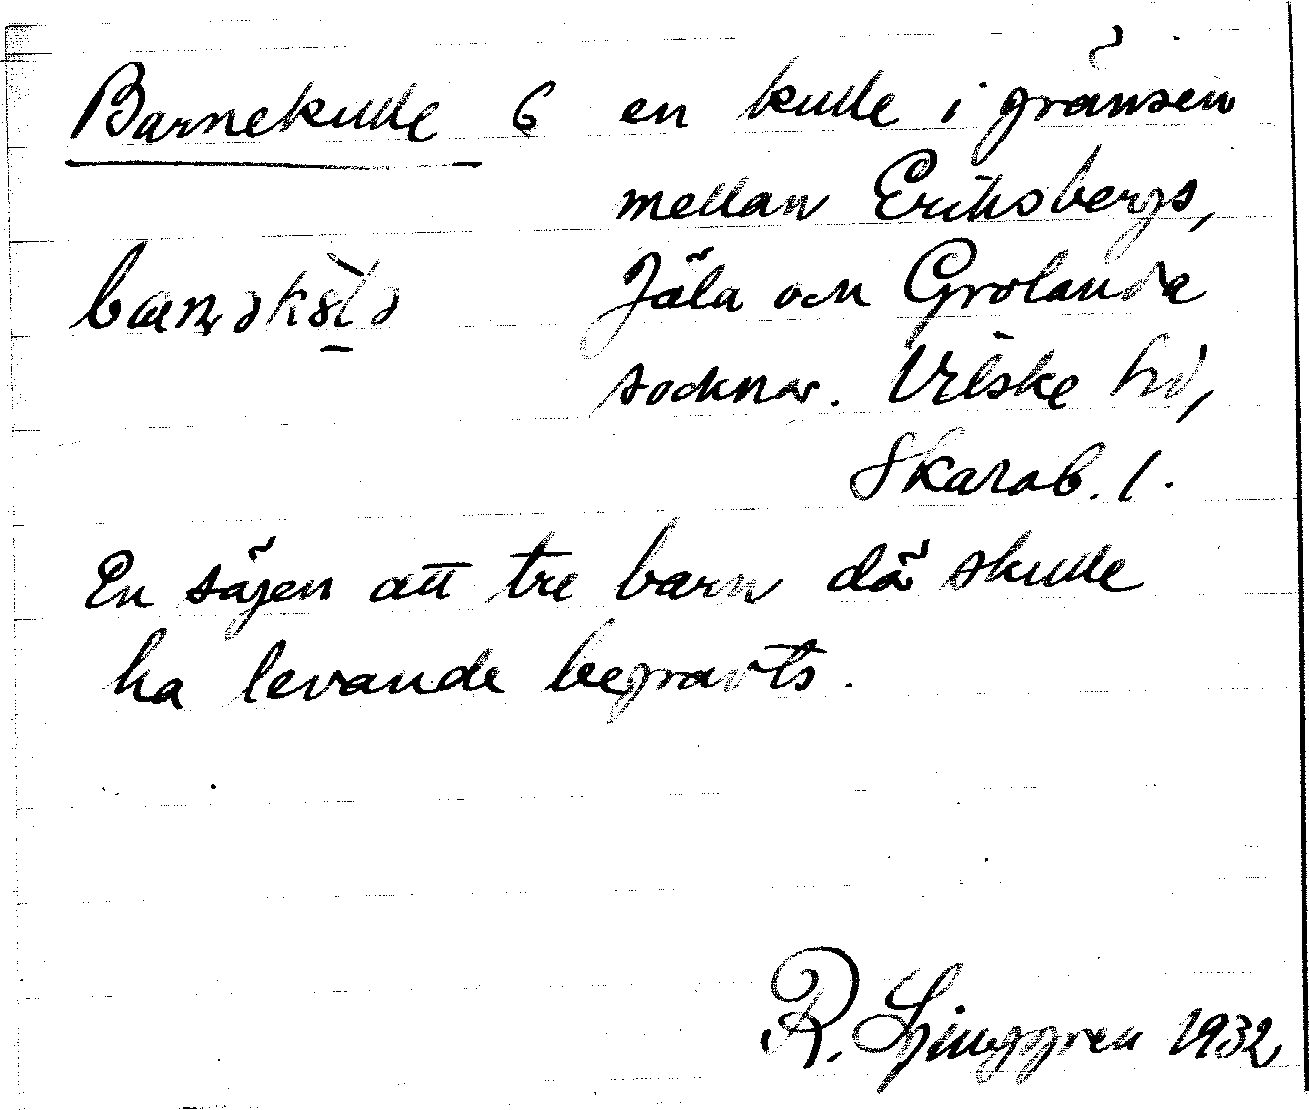 Barnekulle 6 en kulle i gränsen
mellan Eriksbergs,
Jäla och Grolanda
socknar. Vilske hd,
Skarab. l.
En sägen att tre barn där skulle
ha levande begravts.
R. Ljunggren 1932